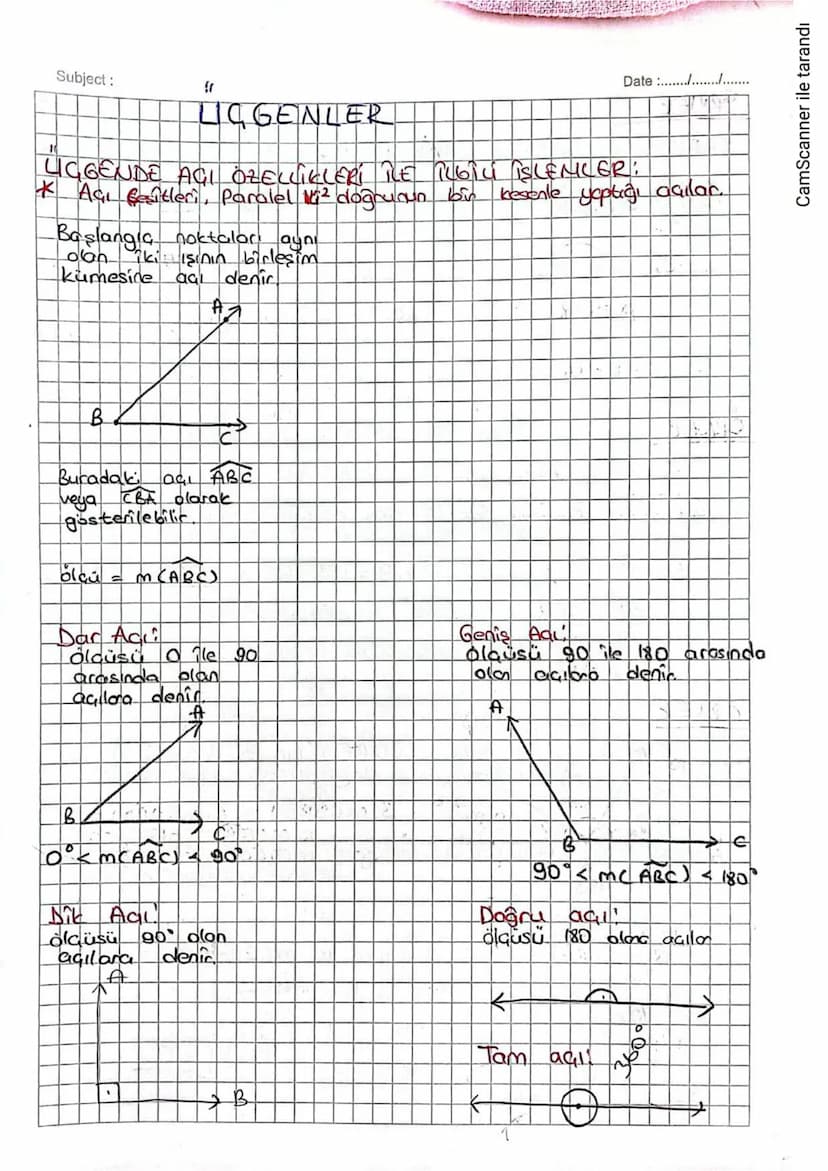 Subject :
Date :......./......./.......
ÜÇGENLER
ÜÇGENDE AÇI ÖZELLİKLERİ İLE İLGİLİ İŞLEMLER:
* Açı Çeşitleri, Paralel iki doğrunun bir kesenle yaptığı açılar.
Başlangıç noktaları aynı
olan iki ışının birleşim
kümesine açı denir.
A
B
C
Buradaki açı ABC
veya CBA olarak
gösterilebilir.
ölçü = m(ABC)
Dar Açı:
ölçüsü 0 ile 90
arasında olan
açılara denir.
A
B
C
0° < m(ABC) < 90°
Geniş Açı:
ölçüsü 90 ile 180 arasında
olan açılara denir.
A
B
C
90° < m(ABC) < 180°
Dik Açı:
ölçüsü 90° olan
açılara denir.
A
B
Doğru açı:
ölçüsü 180 olan açılar
Tam açı: 360°
CamScanner ile tarandı